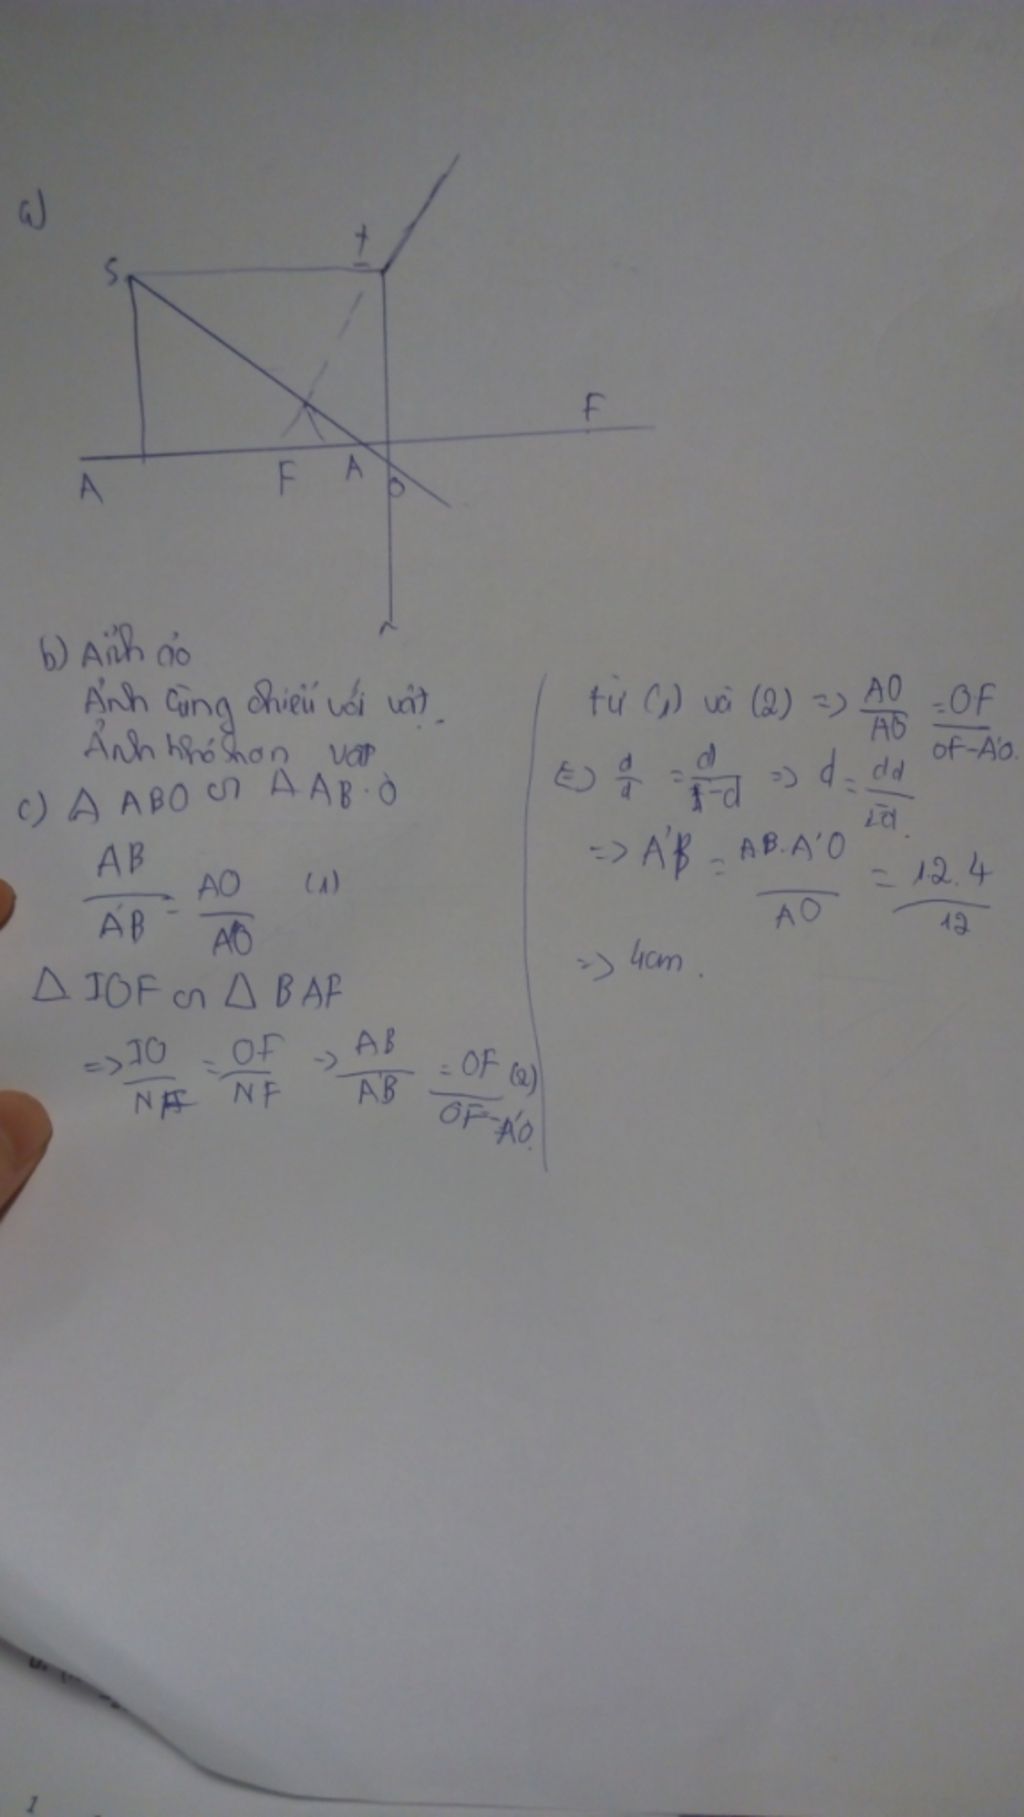 a)
S
I
F
A
F
A
O
b) Ảnh ảo
Ảnh cùng chiều với vật.
Ảnh nhỏ hơn vật
c) Δ ABO ∽ Δ AB.O
AB/A'B = AO/AO (1)
Δ IOF ∽ Δ BAF
=> IO/NF = OF/NF => AB/A'B = OF/OF-A'O (2)
từ (1) và (2) => AO/AO = OF/OF-A'O.
<=> d/d = d/f-d => d = dd/
=> A'B = AB.A'O/AO = 12.4/12
=> 4cm.
1